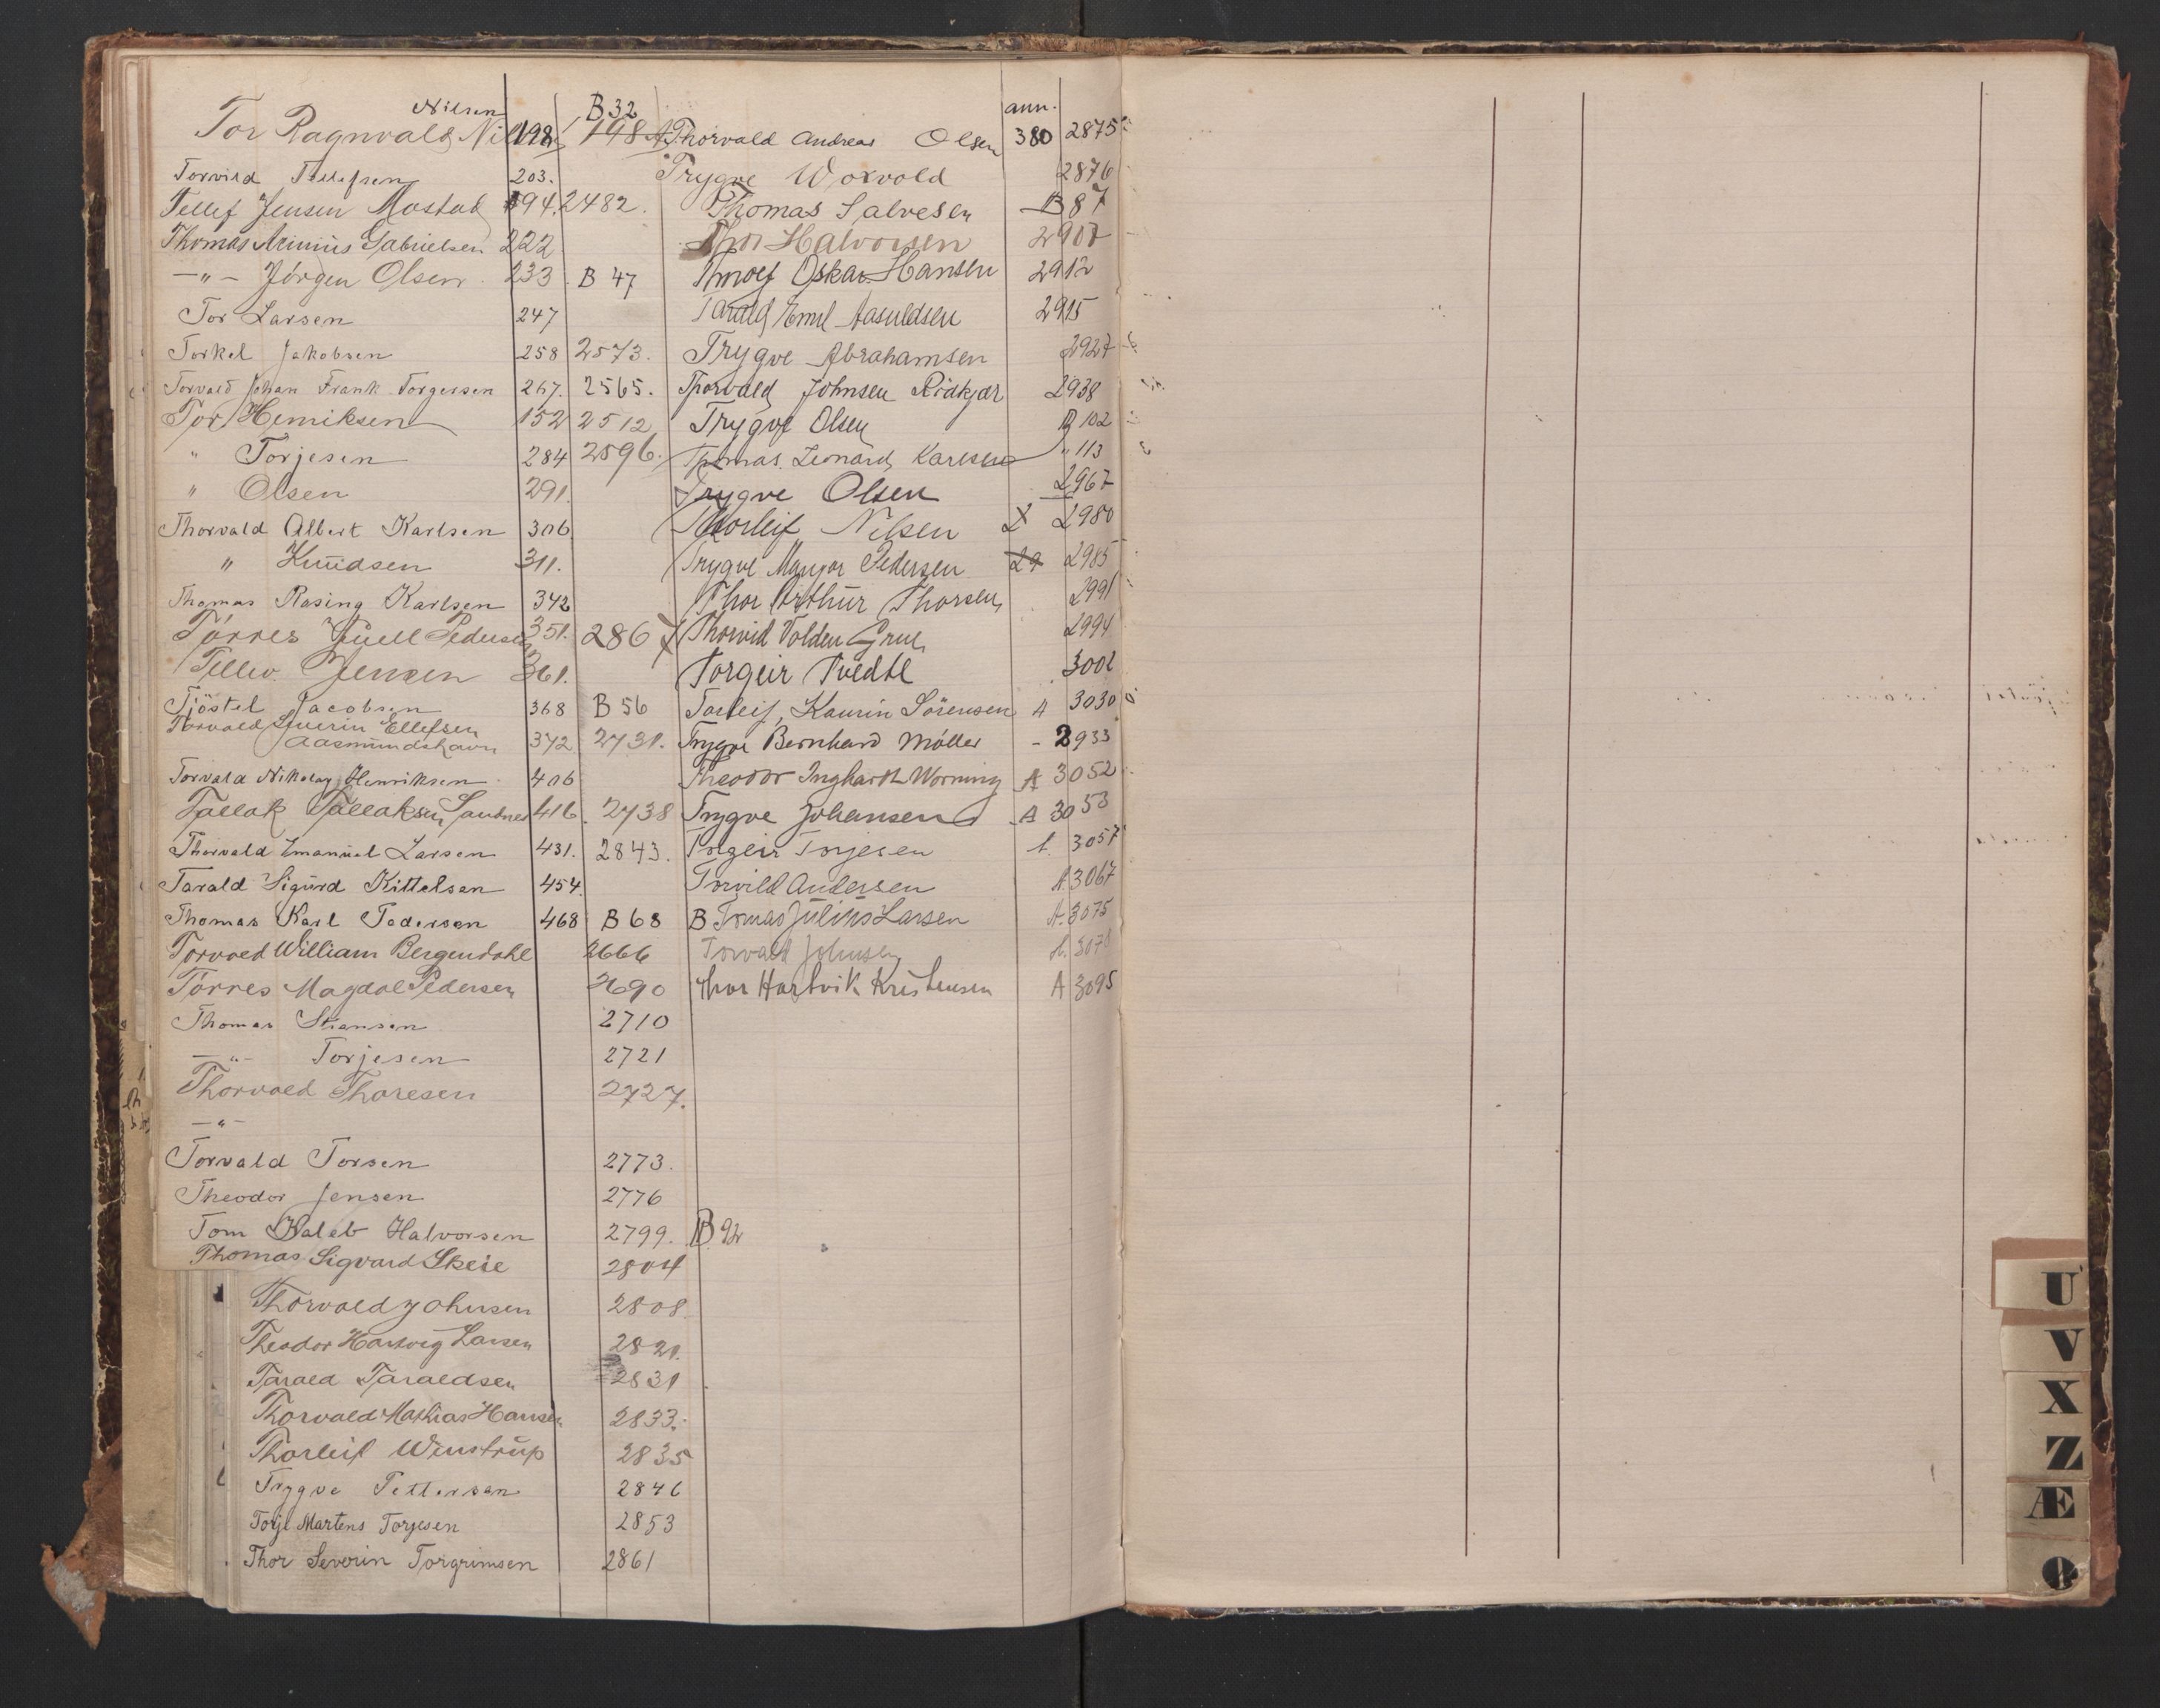 Nilsen B 32 ann.
Tor Ragnvald 198 198 A Thorvald Andreas Olsen 380 2875
Torvild Tellefsen 203. Trygve Woxvold 2876
Tellef Jensen Mostad 194. 2482. Thomas Salvesen B 87
Thomas Arinius Gabrielsen 222 Thor Halvorsen 2907
—"— Jörgen Olsen. 233. B 47 Oskar Hansen 2912
Tor Larsen 247 Emil 2915
Torkel Jakobsen 258 2573. Trygve Abrahamsen 2927
Torvald Johan Frank Torgersen 267. 2565. Thorvald Johnsen Rödkjær 2938
Tor Henriksen 152 2512 Trygve Olsen B 102
" Torjesen 284 2596. Thomas Leonard Karlsen " 113
" Olsen 291. Trygve Olsen 2967
Thorvald Albert Karlsen 306 Thorleif Nilsen 2 2980
" Knudsen 311. Trygve Mangor Pedersen 29 2985
Thomas Rasing Karlsen 342 Thor Arthur Thorsen 2991
Törres Juell Pedersen 351. 2867 Thorvid Volden Grue 2994
Tellev. Jensen 361. Torgeir Tvedte 3002
Tjöstel Jacobsen 368 B 56 Torleif Kaurin Sörensen A 3030
Torvald Severin Ellefsen
Aasmundshavn 372 2731. Trygve Bernhard Möller - 2933
Torvald Nikolay Henriksen 406 Theodor Inghardt Worning A 3052
Tallak Tallaksen Sandnes 416. 2738 Trygve Johansen A 3053
Thorvald Emanuel Larsen 431. 2843. Torgeir Torjesen A. 3057
Tarald Sigurd Kittelsen 454. Torvild Andersen A. 3067
Thomas Karl Pedersen 468 B 68 B Tomas Julius Larsen A. 3075
Torvald William Bergendahl 2666 Torvald Johnsen A. 3078
Törres Magdal Pedersen 2690 Thor Hartvik Kristensen A 3095
Thomas Stiansen 2710
—"— Torjesen 2721
Thorvald Thoresen 2727.
—"—
Torvald Torsen 2773.
Theodor Jensen 2776
Tom Kaleb Halvorsen 2799. B 92
Thomas Sigvard Skeie 2804
Thorvald Johnsen 2808.
Theodor Hartvig Larsen 2821.
Tarald Taraldsen 2831
Thorvald Mathias Hansen 2833.
Thorleif Winstrup 2835
Trygve Pettersen 2846
Torje Martens Torjesen 2853
Thor Severin Torgrimsen 2861
U
V
X
Z
Æ
Ø